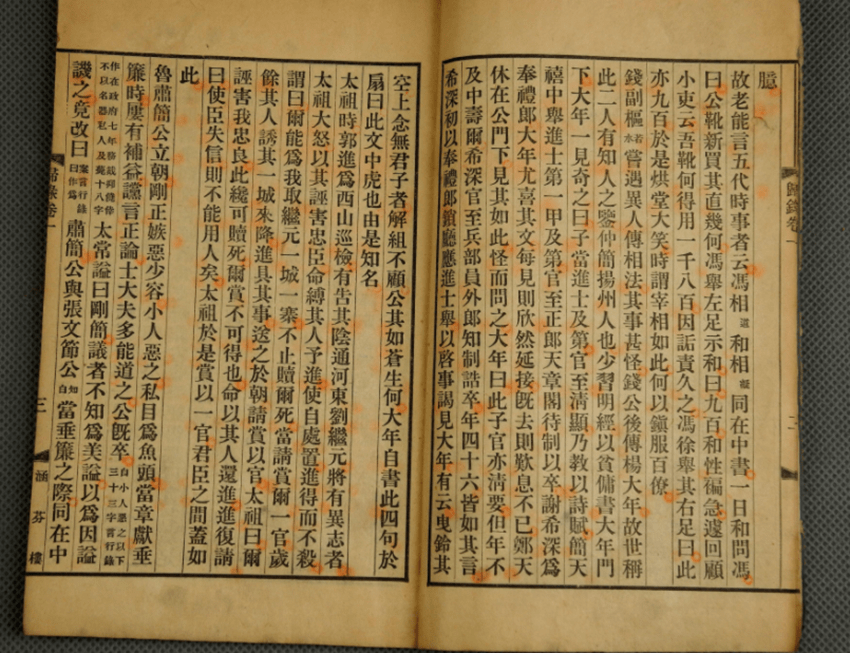 臆
故老能言五代時事者云馮相道和相凝同在中書一日和問馮
曰公靴新買其直幾何馮舉左足示和曰九百和性褊急遽回顧
小吏云吾靴何得用一千八百因詬責久之馮徐舉其右足曰此
亦九百於是烘堂大笑時謂宰相如此何以鎭服百僚
錢副樞若水嘗遇異人傳相法其事甚怪錢公後傳楊大年故世稱
此二人有知人之鑒仲簡揚州人也少習明經以貧傭書大年門
下大年一見奇之曰子當進士及第官至清顯乃教以詩賦簡天
禧中舉進士第一甲及第官至正郎天章閣待制以卒謝希深爲
奉禮郎大年尤喜其文每見則欣然延接旣去則歎息不已鄭天
休在公門下見其如此怪而問之大年曰此子官亦清要但年不
及中壽爾希深官至兵部員外郎知制誥卒年四十六皆如其言
希深初以奉禮郎鎖廳應進士舉以啓事謁見大年有云曳鈴其
空上念無君子者解組不顧公其如蒼生何大年自書此四句於
扇曰此文中虎也由是知名
太祖時郭進爲西山巡檢有告其陰通河東劉繼元將有異志者
太祖大怒以其誣害忠臣命縛其人予進使自處置進得而不殺
謂曰爾能爲我取繼元一城一寨不止贖爾死當請賞爾一官歲
餘其人誘其一城來降進具其事送之於朝請賞以官太祖曰爾
誣害我忠良此纔可贖死爾賞不可得也命以其人還進進復請
曰使臣失信則不能用人矣太祖於是賞以一官君臣之間蓋如
此
魯肅簡公立朝剛正嫉惡少容小人惡之私目爲魚頭當章獻垂
簾時屢有補益讜言正論士大夫多能道之公旣卒自小人惡之以下三十三字言行錄
作在政府七年務裁抑僥倖不以名器私人及薨十八字太常諡曰剛簡議者不知爲美諡以爲因諡
譏之竟改曰案言行錄曰作爲肅簡公與張文節公知白當垂簾之際同在中
三
涵芬樓